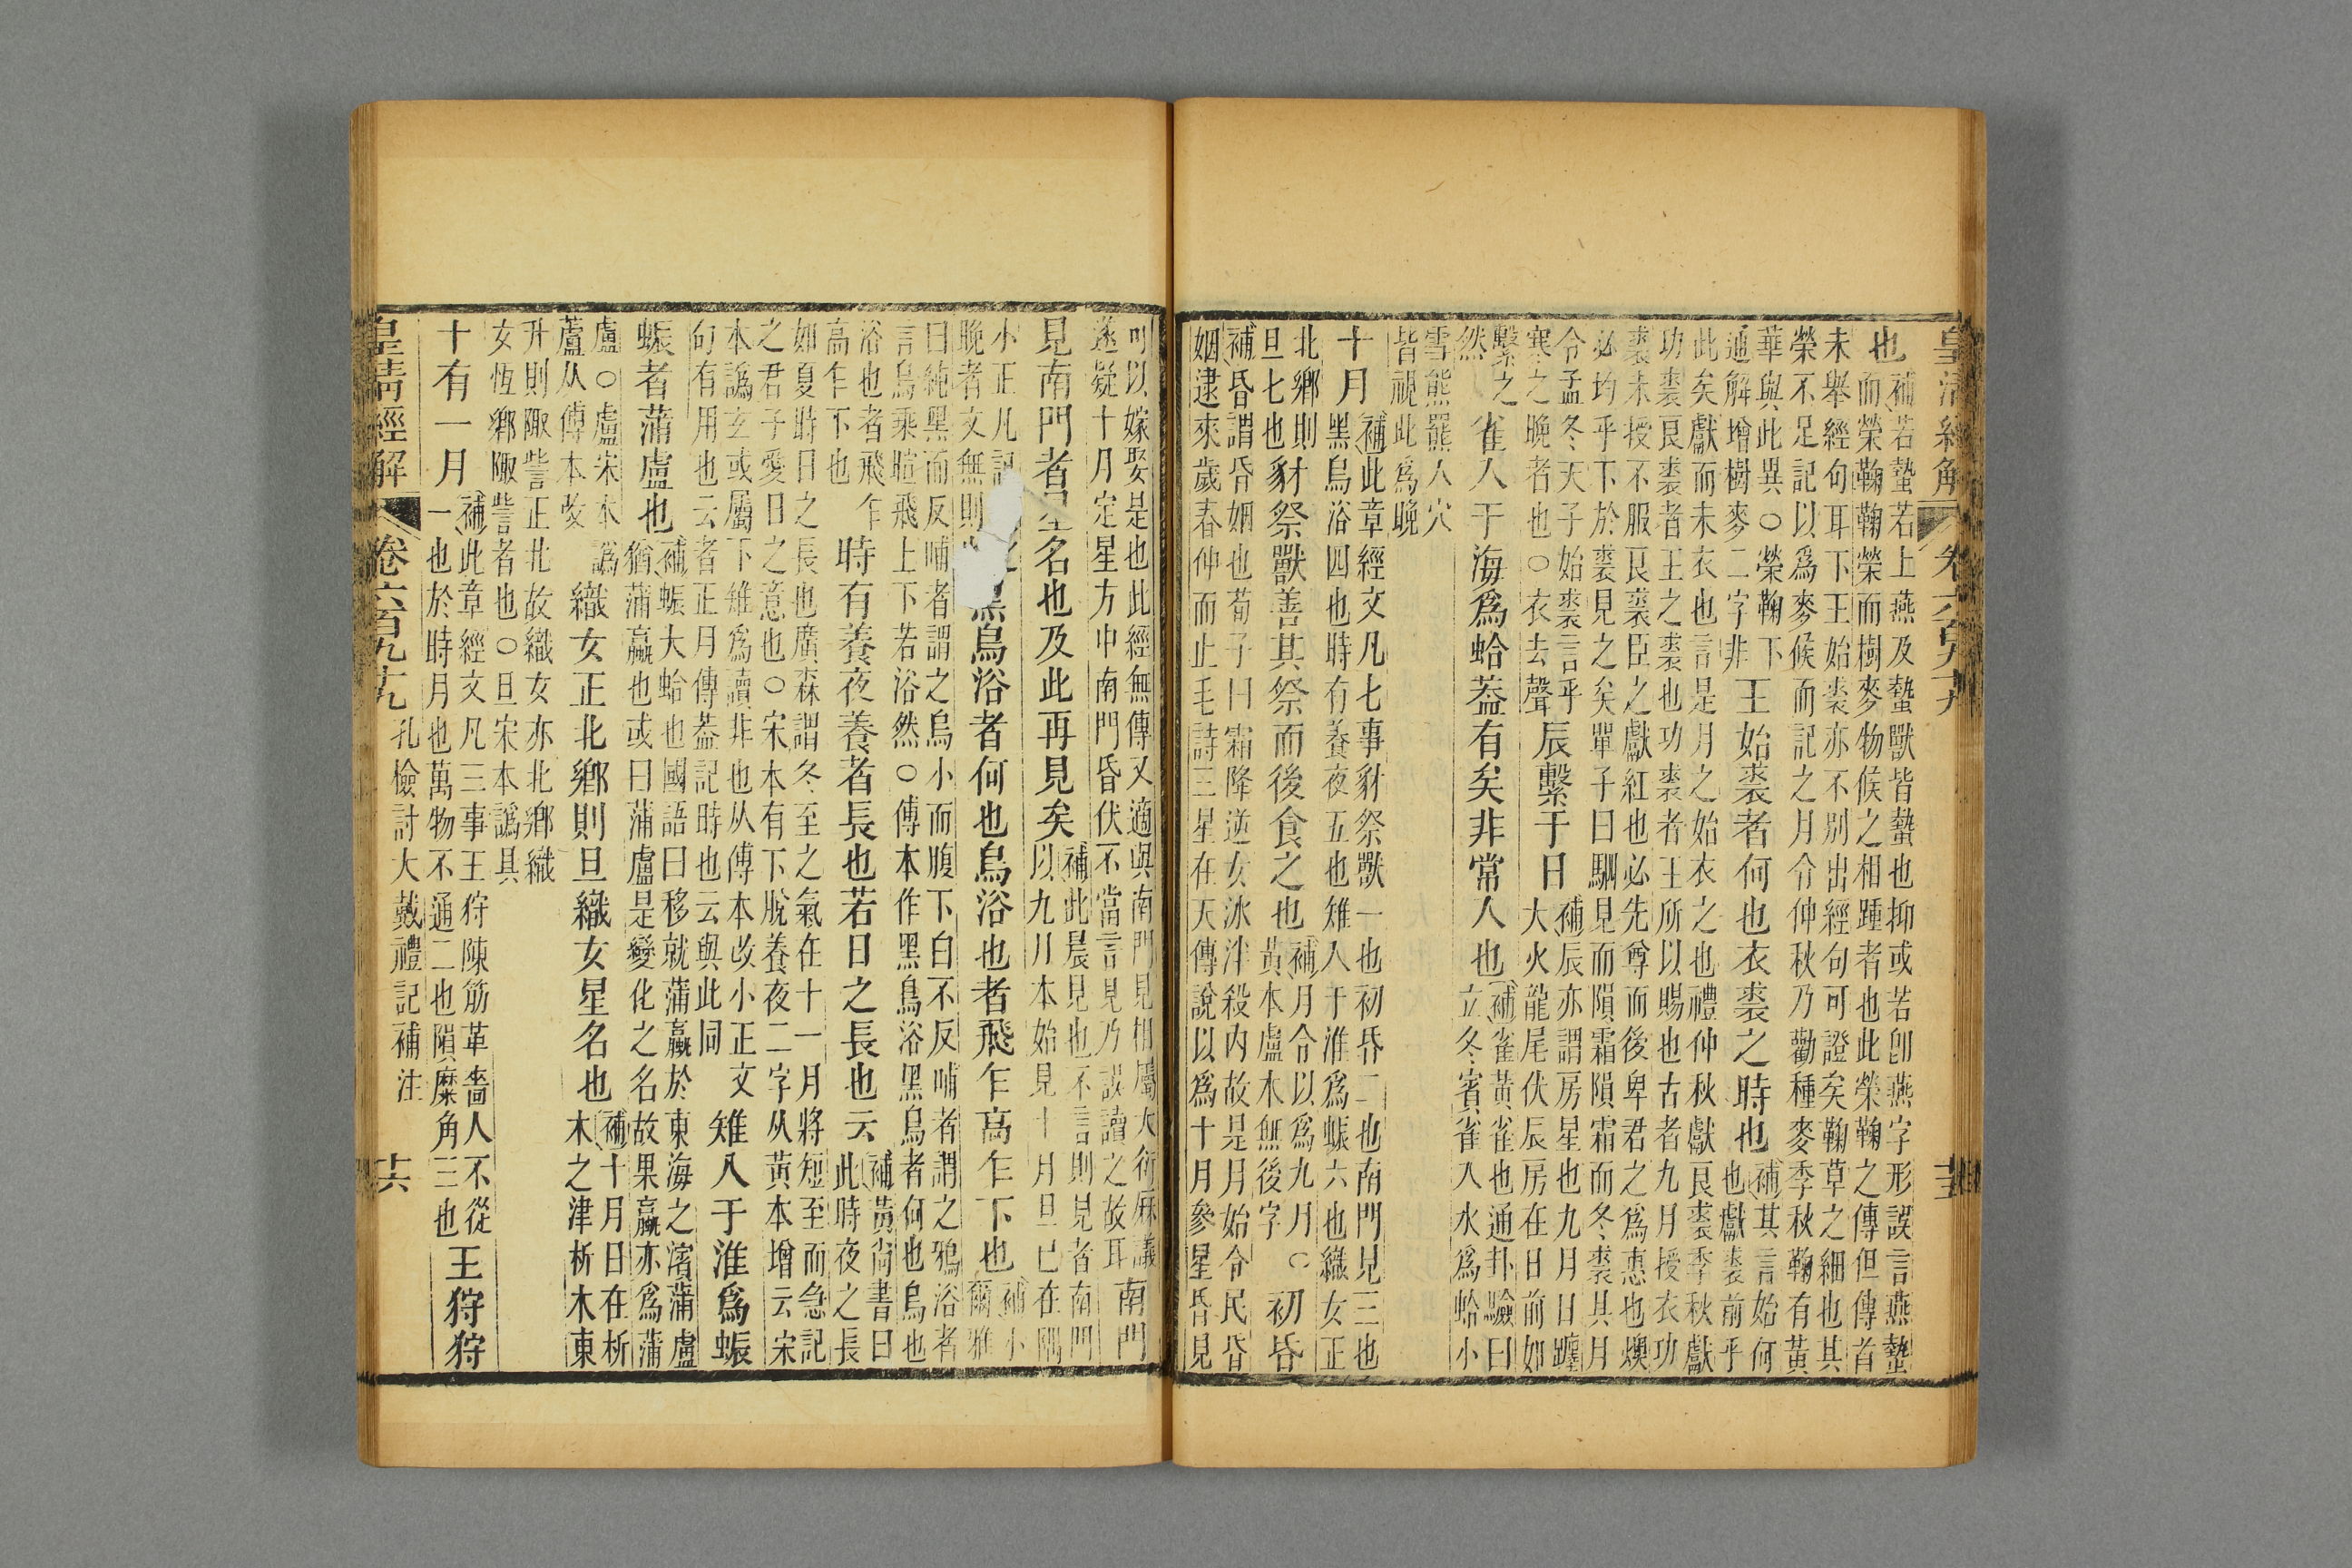 皇清經解 卷六百九十九 十五
也補若蟄若上燕及蟄獸皆蟄也抑或若卽燕字形誤言燕蟄
而榮鞠鞠榮而樹麥物候之相踵者也此榮鞠之傳但傳首
未舉經句耳下王始裘亦不別出經句可證矣鞠草之細也其
榮不足記以爲麥候而記之月令仲秋乃勸種麥季秋鞠有黃
華與此異○榮鞠下
通解增樹麥二字非
王始裘者何也衣裘之時也補其言始何
也獻裘前乎
此矣獻而未衣也言是月之始衣之也禮仲秋獻良裘季秋獻
功裘良裘者王之裘也功裘者王所以賜也古者九月授衣功
裘未授不服良裘臣之獻紅也必先尊而後卑君之爲惠也燠
必均乎下於裘見之矣單子曰駟見而隕霜隕霜而冬裘具月
令孟冬天子始裘言乎
寒之晚者也○衣去聲
辰繫于日補辰亦謂房星也九月日躔
大火龍尾伏辰房在日前如
繫之
然
雀入于海爲蛤葢有矣非常入也補雀黃雀也通卦驗曰
立冬賓雀入水爲蛤小
雪熊羆入穴
皆視此爲晚
十月補此章經文凡七事豺祭獸一也初昏二也南門見三也
黑鳥浴四也時有養夜五也雉入于淮爲蜄六也織女正
北鄉則
旦七也
豺祭獸善其祭而後食之也補月令以爲九月○
黃本盧本無後字
初昏
補昏謂昏姻也荀子曰霜降逆女冰泮殺內故是月始令民昏
姻逮來歲春仲而止毛詩三星在天傳說以爲十月參星昏見
可以嫁娶是也此經無傳又適與南門見相屬大衍厤議
遂疑十月定星方中南門昏伏不當言見乃誤讀之故耳
南門
見南門者星名也及此再見矣補此晨見也不言則見者南門
以九月本始見十月旦已在隅
小正凡記
晚者文無則
黑鳥浴者何也烏浴也者飛乍高乍下也補小
爾雅
曰純黑而反哺者謂之烏小而腹下白不反哺者謂之鴉浴者
言烏乘暄飛上下若浴然○傳本作黑鳥浴黑鳥者何也烏也
浴也者飛乍
高乍下也
時有養夜養者長也若日之長也云補黃尙書曰
此時夜之長
如夏時日之長也廣森謂冬至之氣在十一月將短至而急記
之君子愛日之意也○宋本有下脫養夜二字从黃本增云宋
本譌玄或屬下雉爲讀非也从傳本改小正文
句有用也云者正月傳葢記時也云與此同
雉入于淮爲蜄
蜄者蒲盧也補蜄大蛤也國語曰移就蒲蠃於東海之濱蒲盧
猶蒲蠃也或曰蒲盧是變化之名故果蠃亦爲蒲
盧○盧宋本譌
蘆从傳本改
織女正北鄉則旦織女星名也補十月日在析
木之津析木東
升則陬訾正北故織女亦北鄉織
女恆鄉陬訾者也○旦宋本譌具
十有一月補此章經文凡三事王狩陳筋革嗇人不從
一也於時月也萬物不通二也隕麋角三也
王狩狩
皇清經解 卷六百九十九 孔檢討大戴禮記補注 十六